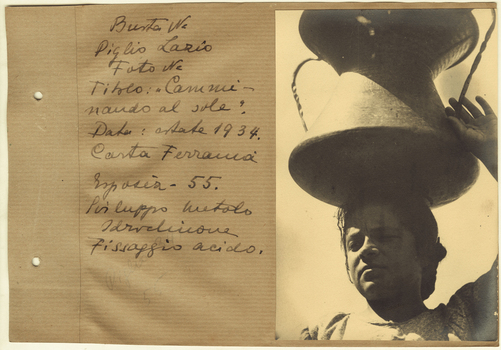 Busta No
Piglio Lazio
Foto No
Titolo: "Cammi-
nando al sole".
Data: estate 1934.
Carta Ferrania
Esposiz - 55.
Sviluppo Metolo
Idrochinone
Fissaggio acido.